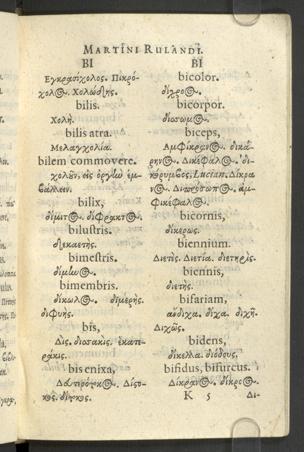 MARTINI RULANDI.
BI
Εγκρασίχολος. Πικρό-
χολ@. Χολώδης.
bilis.
Χολή.
bilis atra.
Μελαγχολία.
bilem commovere.
χολᾶν, εἰς ὀργὴν ἐμ-
βάλλειν.
bilix,
δίμιτ@.
bilustris.
δεκαετής.
bimestris.
δίμην@.
bimembris.
δίκωλ@. διμερής.
διφυής.
bis,
Δὶς. δισσάκις. ἑκατε-
ράκις.
bis enixa,
Δευτερότοκ@. Δίτο-
κος. δίγονος.
BI
bicolor.
δίχρο@.
bicorpor.
δίσωμ@.
biceps,
Αμφίκραν@. δικά-
ρην@. Δικέφαλ@. δι-
κόρυμβος. Lucian. Δίκρα
ν@. Διπρόσωπ@. ἀμ-
φικέφαλ@.
bicornis,
δίκερως.
biennium.
Διετὶς. Διετία. διετηρὶς.
biennis,
διετής.
bifariam,
δίχα. διχῆ.
Διχῶς.
bidens,
δίκελλα. διόδους,
bifidus, bifurcus.
Δίκραν@. δίκρο@.
K 5 Δι-